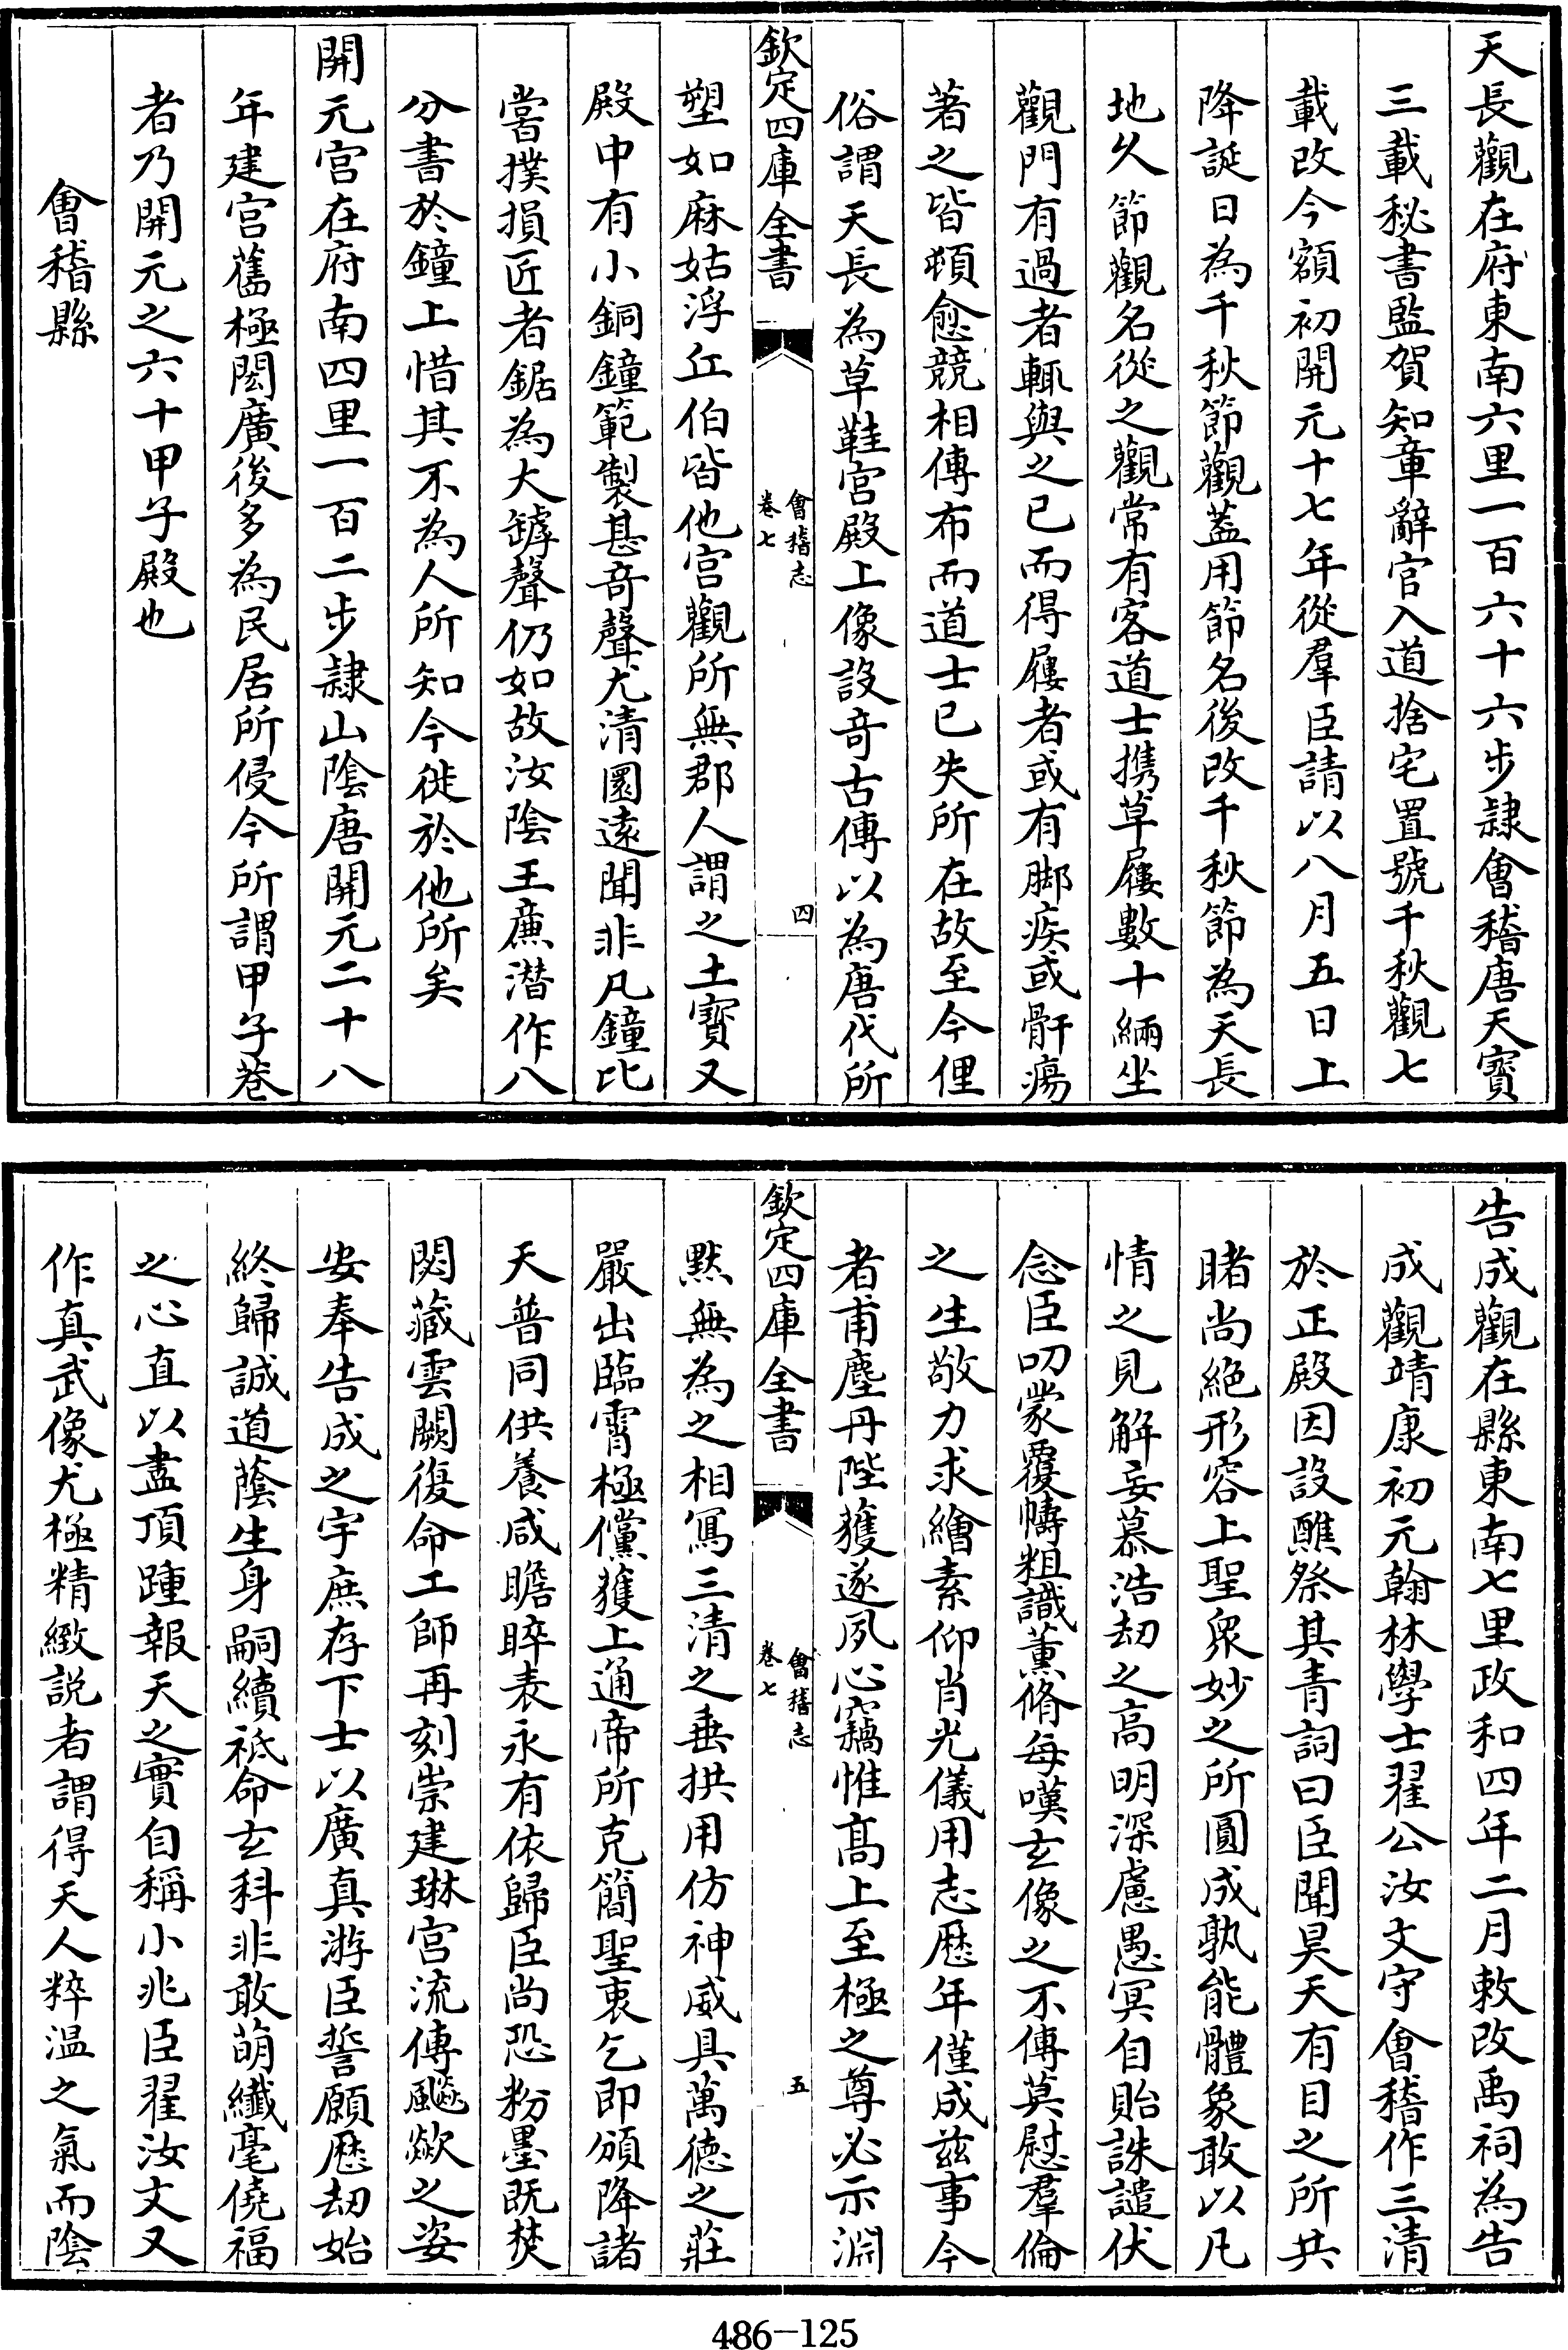 天長觀在府東南六里一百六十六步隷會稽唐天寳
三載秘書監賀知章辭官入道捨宅置號千秋觀七
載改今額初開元十七年從羣臣請以八月五日上
降誕日為千秋節觀蓋用節名後改千秋節為天長
地久節觀名從之觀常有客道士携草屨數十緉坐
觀門有過者輒與之已而得屨者或有脚疾或骭瘍
著之皆頓愈競相傳布而道士已失所在故至今俚
俗謂天長為草鞋宫殿上像設竒古傳以為唐代所
欽定四庫全書
會稽志
卷七
四
塑如麻姑浮丘伯皆他宫觀所無郡人謂之土寳又
殿中有小銅鐘範製甚竒聲尤清圜遠聞非凡鐘比
嘗撲損匠者鋸為大罅聲仍如故汝隂王亷潜作八
分書於鐘上惜其不為人所知今徙於他所矣
開元宫在府南四里一百二步隷山隂唐開元二十八
年建宫舊極閎廣後多為民居所侵今所謂甲子巷
者乃開元之六十甲子殿也
會稽縣
告成觀在縣東南七里政和四年二月敕改禹祠為告
成觀靖康初元翰林學士翟公汝文守會稽作三清
於正殿因設醮祭其青詞曰臣聞昊天有目之所共
睹尚絶形容上聖衆妙之所圓成孰能體象敢以凡
情之見解妄慕浩劫之高明深慮愚冥自貽誅譴伏
念臣叨蒙覆幬粗識薫脩每嘆玄像之不傳莫慰羣倫
之生敬力求繪素仰肖光儀用志歴年僅成兹事今
者甫塵丹陛獲遂夙心竊惟髙上至極之尊必示淵
欽定四庫全書
會稽志
卷七
五
黙無為之相冩三清之垂拱用仿神威具萬徳之莊
嚴出臨霄極儻獲上通帝所克簡聖衷乞即頒降諸
天普同供養咸瞻睟表永有依歸臣尚恐粉墨既焚
閟藏雲闕復命工師再刻崇建琳宫流傳飈歘之姿
安奉告成之宇庶存下士以廣真游臣誓願歴劫始
終歸誠道蔭生身嗣續祗命玄科非敢萌纖毫僥福
之心直以盡頂踵報天之實自稱小兆臣翟汝文又
作真武像尤極精緻説者謂得天人粹温之氣而隂
486-125